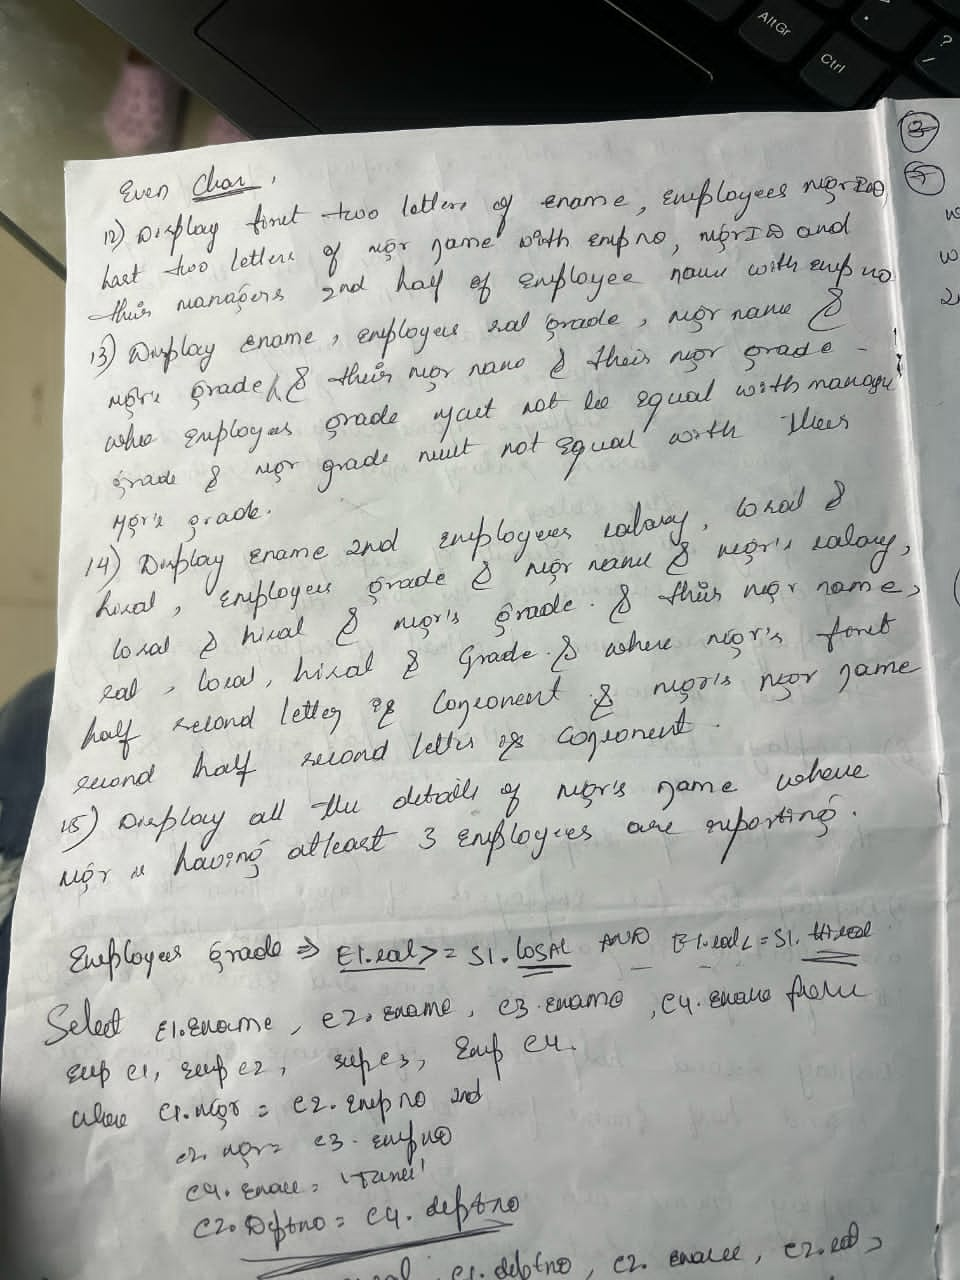 AltGr
Ctrl
?
/
2
5
Even Char,
12) Display first two letters of ename, employees mgr
last two letters of mgr name with empno, mgrID and
their managers 2nd half of employee name with empno
13) Display ename, employees sal grade, mgr name &
mgr's grade & their mgr name & their mgr grade -
where employees grade must not be equal with manager
grade & mgr grade must not equal with their
Mgr's grade.
14) Display ename 2nd employees salary, losal &
hisal, employees grade & mgr name & mgr's salary,
losal & hisal & mgr's grade. & their mgr name,
sal, losal, hisal & Grade. & where mgr's first
half second letter is consonent & mgr's mgr name
second half second letter is consonent.
15) Display all the details of mgr's name where
mgr is having atleast 3 employees are reporting.
Employees grade ⇒ E1.sal>= S1.LOSAL AND E1.sal<=S1.Hisal
Select E1.Ename, e2.ename, e3.ename, e4.ename from
emp e1, emp e2, emp e3, Emp e4.
where e1.mgr = e2.empno and
e2.mgr= e3.empno
e4.ename=
e2.Deptno = e4.deptno
e1.deptno, e2.ename, e2.sal,